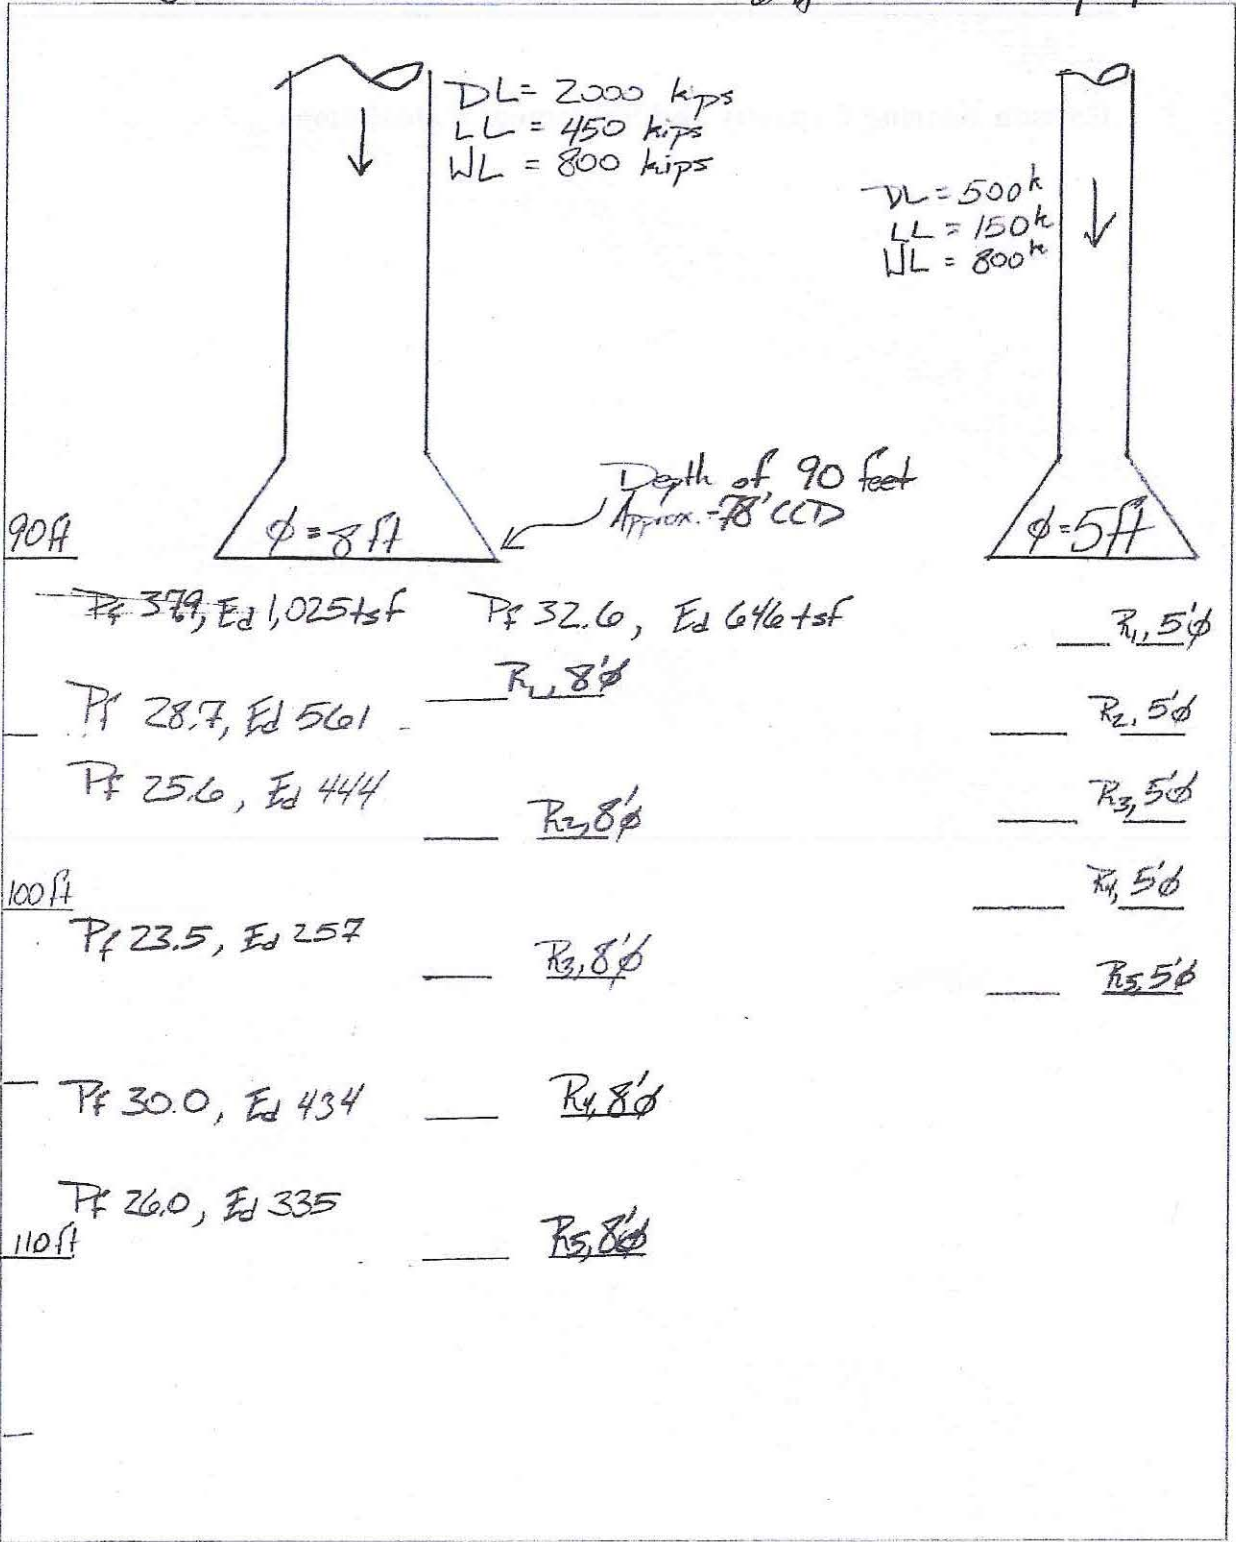 DL = 2000 kips
LL = 450 kips
WL = 800 kips
DL = 500k
LL = 150k
WL = 800k
Depth of 90 feet
Approx. -78' CCD
90 ft
ϕ = 8 ft
ϕ = 5 ft
Pf 379, Ed 1,025 tsf
Pf 32.6, Ed 646 tsf
R1, 5'ϕ
R1, 8'ϕ
Pf 28.7, Ed 561
R2, 5'ϕ
Pf 25.6, Ed 444
R2, 8'ϕ
R3, 5'ϕ
100 ft
R4, 5'ϕ
Pf 23.5, Ed 257
R3, 8'ϕ
R5, 5'ϕ
Pf 30.0, Ed 434
R4, 8'ϕ
Pf 26.0, Ed 335
110 ft
R5, 8'ϕ